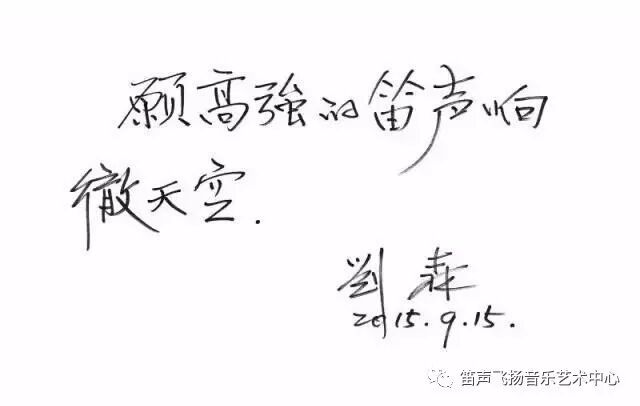 願高強的笛声响
徹天空.
劉森
2015.9.15.
笛声飞扬音乐艺术中心